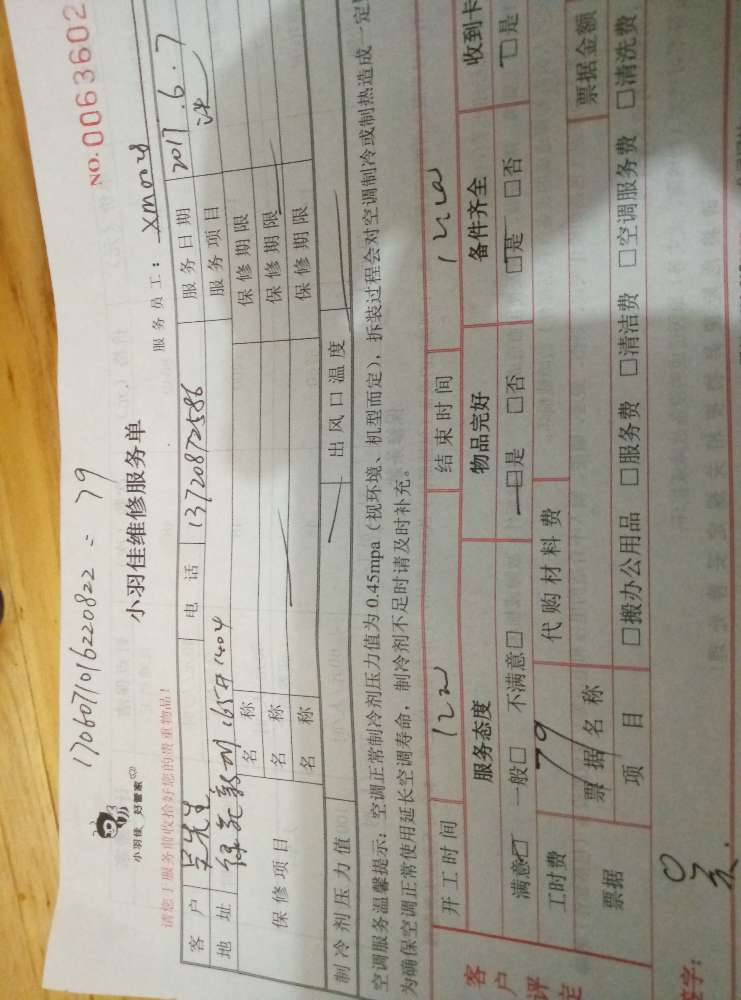 1706071016220822 : 79
小羽佳维修服务单
NO.0063602
小羽佳 好管家
请您于服务前收拾好您的贵重物品!
服务员工: xm002
客户 电话 13720872586 服务日期 2017.6.7
地址 165# 1404 服务项目
保修项目
名称 保修期限
名称 保修期限
名称 保修期限
制冷剂压力值 出风口温度
空调服务温馨提示:空调正常制冷剂压力值为0.45mpa(视环境、机型而定),拆装过程会对空调制冷或制热造成一定
为确保空调正常使用延长空调寿命,制冷剂不足时请及时补充。
开工时间 结束时间
客户评定
服务态度 物品完好 备件齐全 收到卡
满意□ 一般□ 不满意□ □是 □否 □是 □否 □是
工时费 79 代购材料费
票据 票据名称 票据金额
项目 □搬办公用品 □服务费 □清洁费 □空调服务费 □清洗费
字: